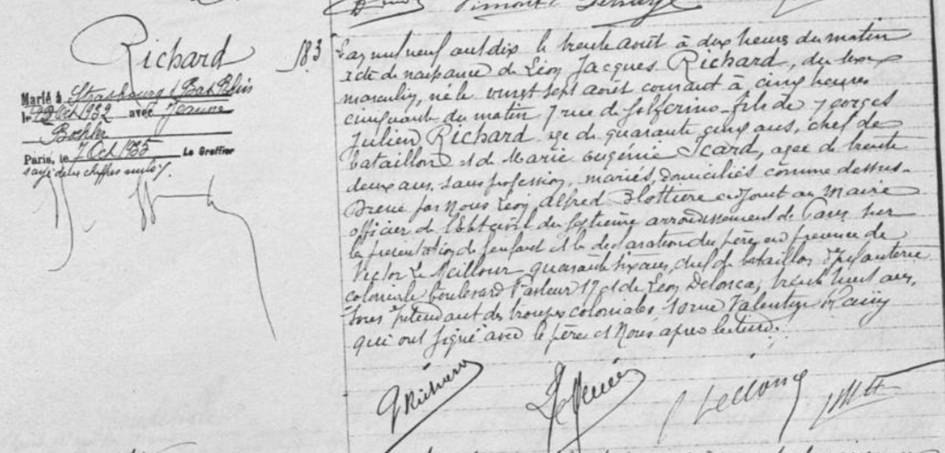 Richard
183
Marié à Strasbourg (Bas Rhin)
le Oct 1932 avec Jeanne
Paris, le 7 Oct 1935 Le Greffier
L'an mil neuf cent dix le trente août à dix heures du matin
acte de naissance de Léon Jacques Richard, du sexe
masculin, né le vingt sept août courant à cinq heures
cinquante du matin 7 rue de Solférino, fils de Georges
Julien Richard age de quarante cinq ans, chef de
bataillon et de Marie Eugénie Icard, agée de trente
deux ans, sans profession, mariés, domiciliés comme dessus.
Dressé par Nous Léon Alfred Blottière adjoint au maire
officier de l'Etat civil du septième arrondissement de Paris sur
la présentation de l'enfant et la déclaration du père en présence de
Victor Le quarante six ans, chef de bataillon d'infanterie
coloniale boulevard Pasteur 17 et de Léon trente huit ans,
sous intendant des troupes coloniales, rue Valentin Haüy
qui ont signé avec le père et Nous après lecture.